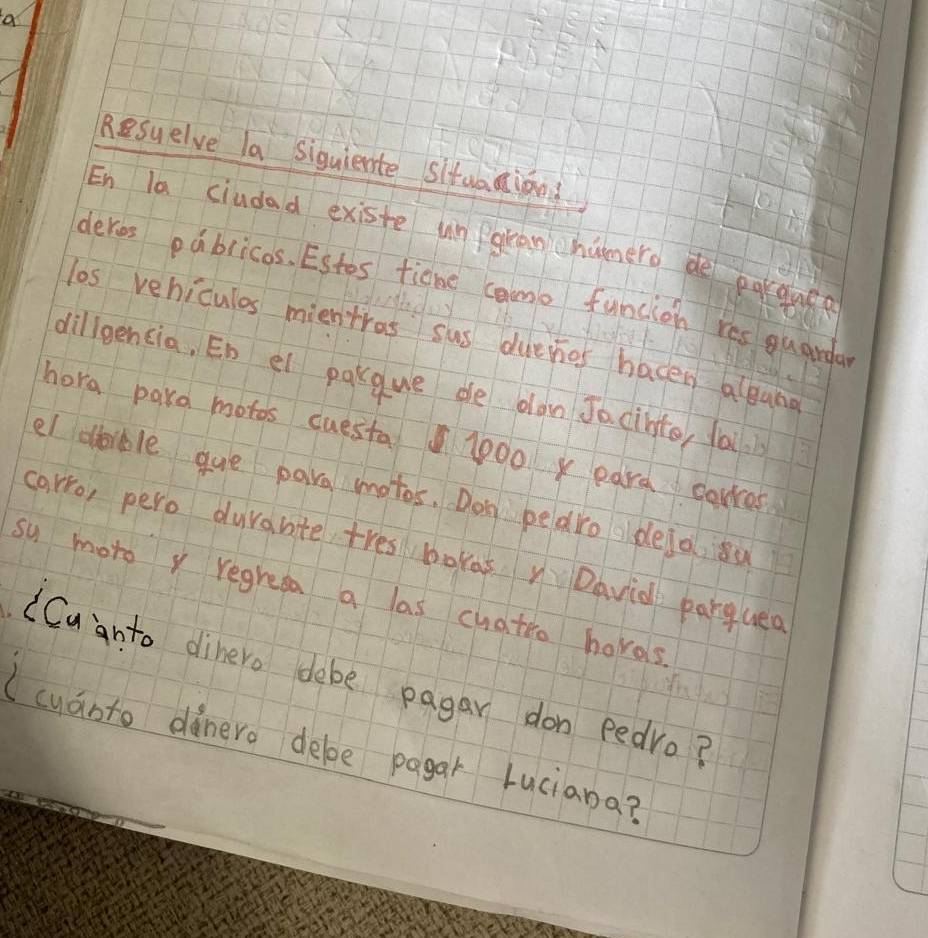 Resuelve la siguiente situación:
En la ciudad existe un gran número de parquea
deros públicos. Estos tiene como función res guardar
los vehículos mientras sus dueños hacen alguna
diligencia. En el parque de don Jacinto, la
hora para motos cuesta $ 1000 y para carros
el doble que para motos. Don pedro deja su
carro, pero durante tres horas y David parquea
su moto y regresa a las cuatro horas.
¿Cuánto dinero debe pagar don Pedro?
¿cuánto dinero debe pagar Luciana?